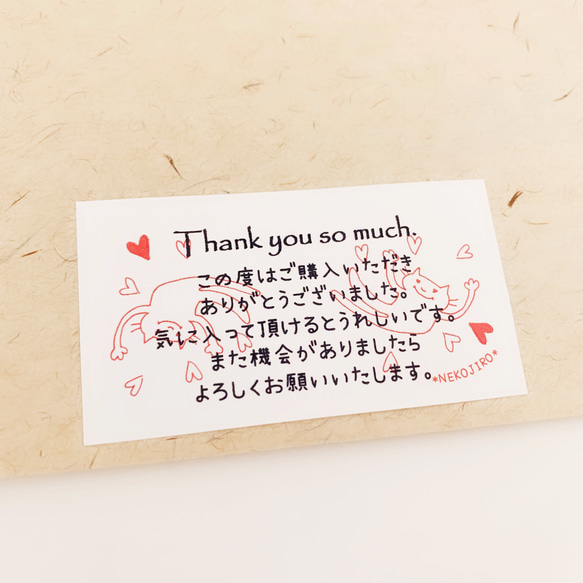 Thank you so much.
この度はご購入いただき
ありがとうございました。
気に入って頂けるとうれしいです。
また機会がありましたら
よろしくお願いいたします。
*NEKOJIRO*